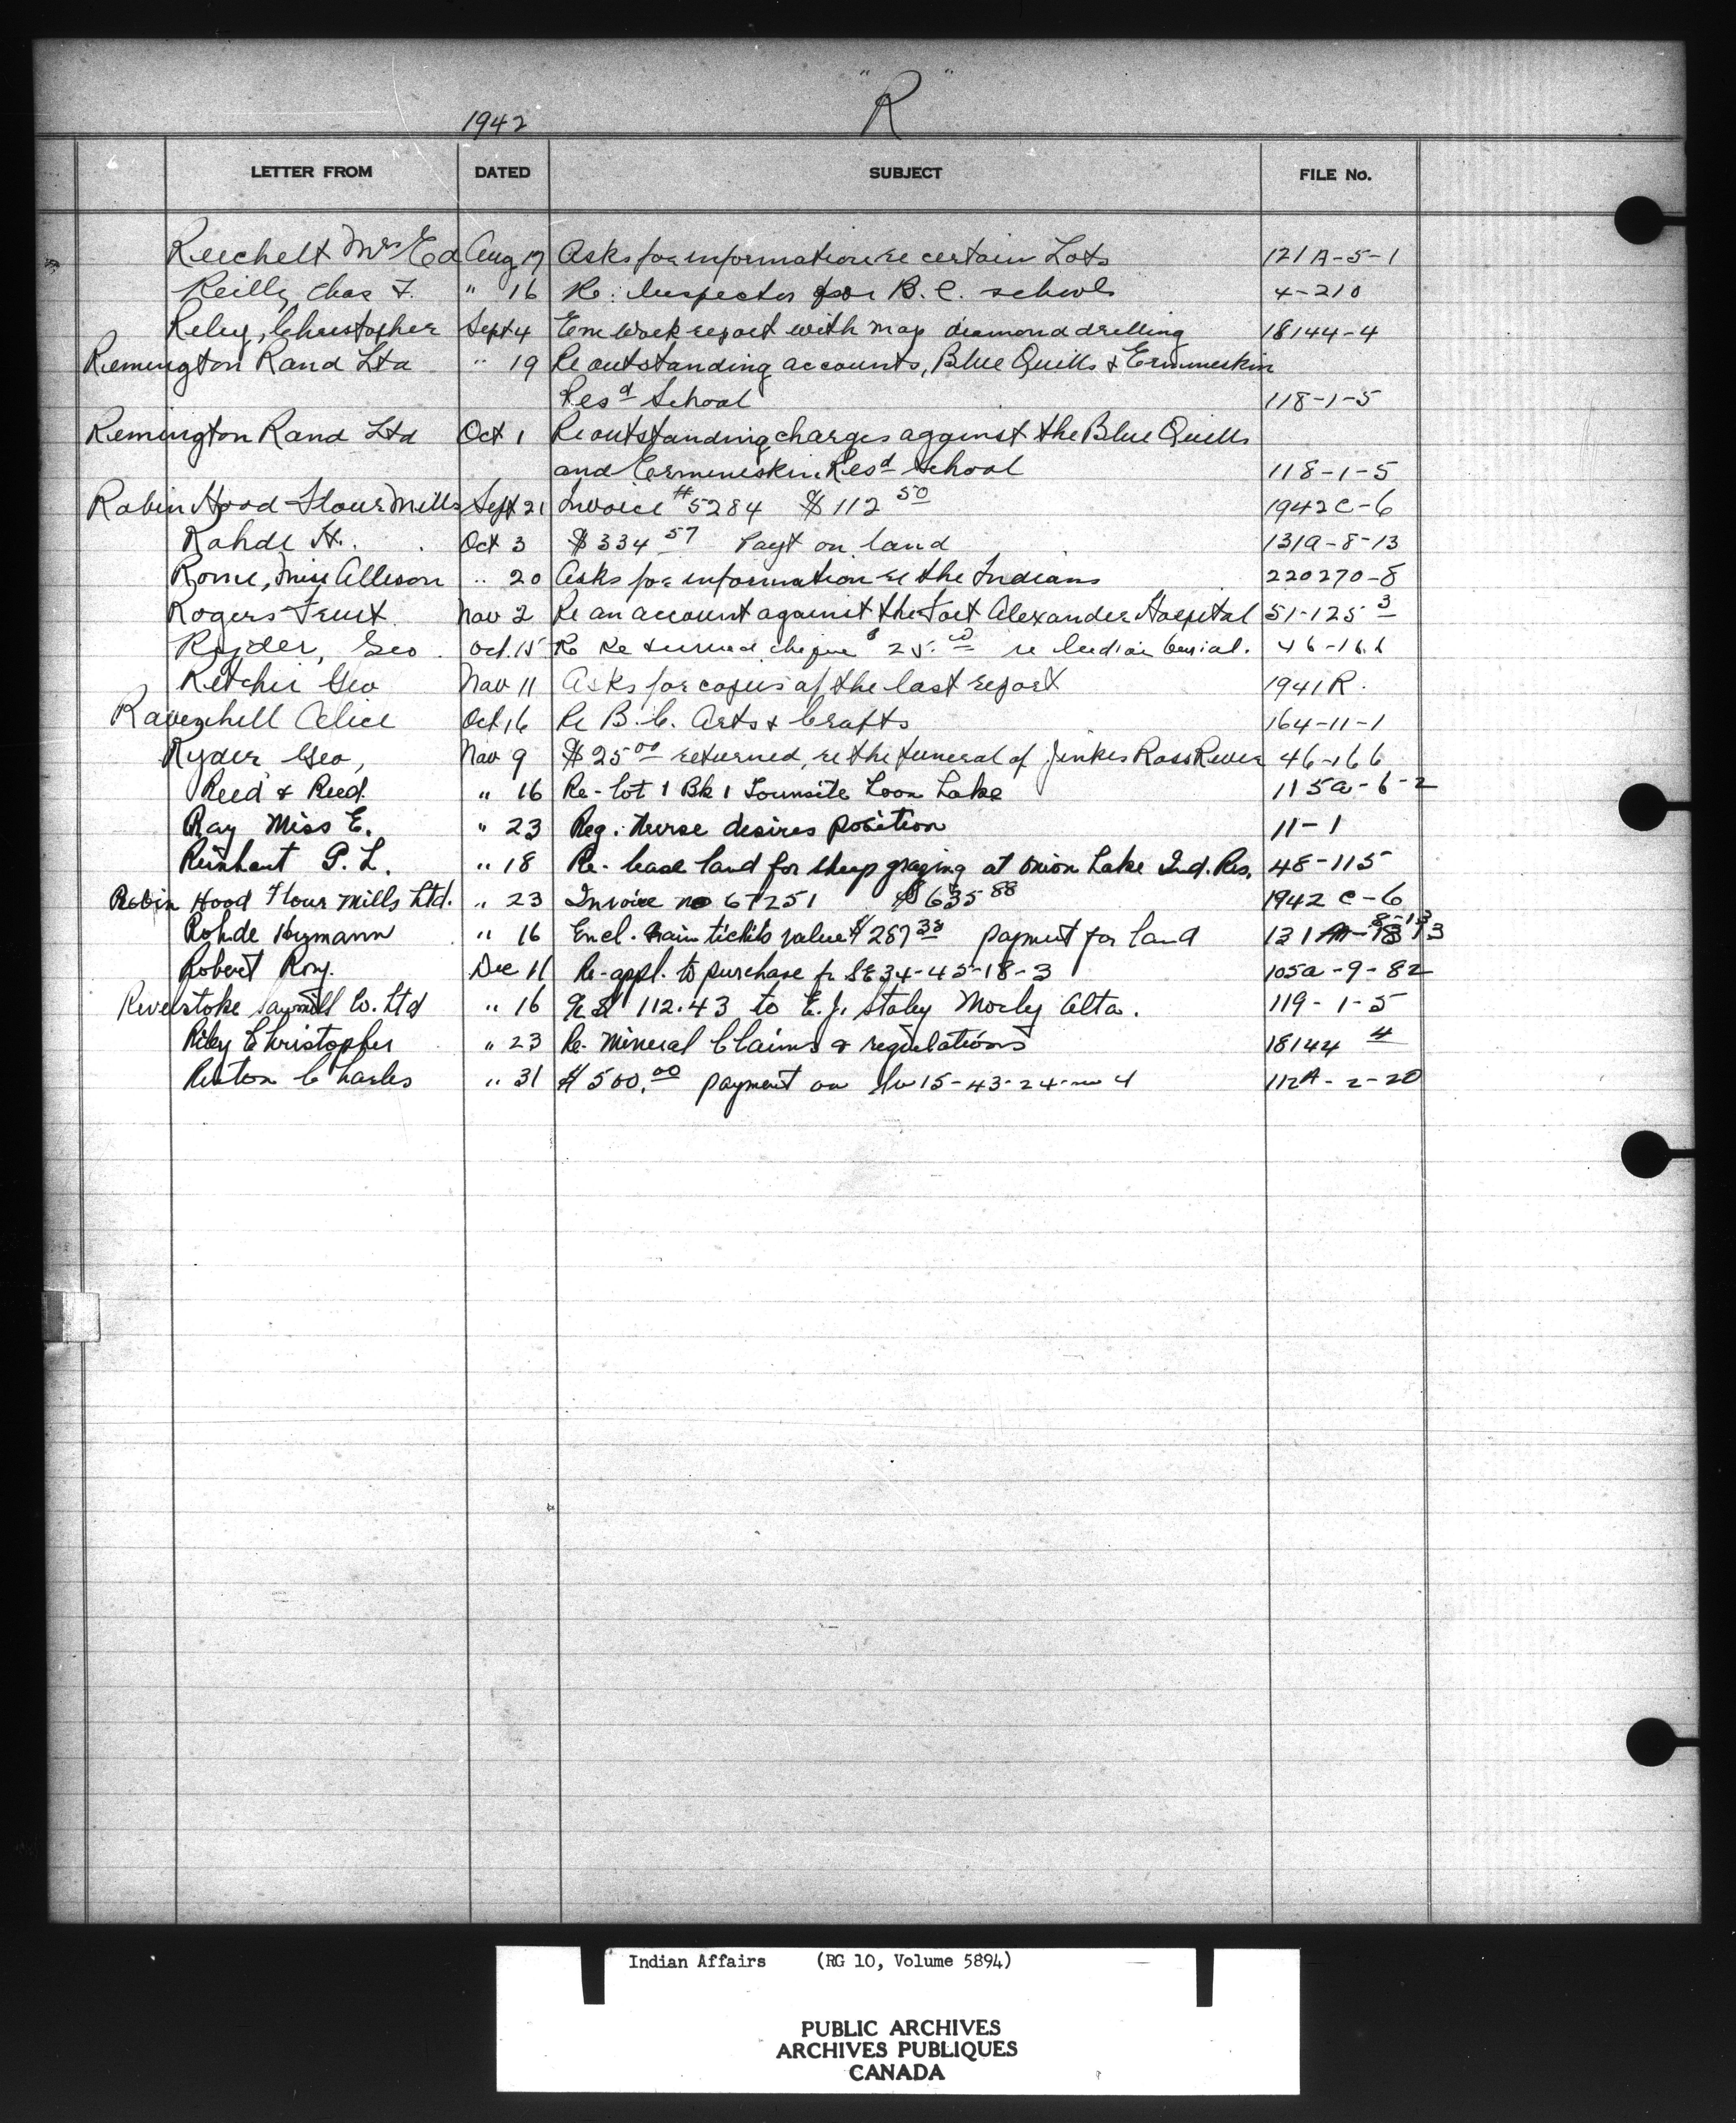 "R"
1942
LETTER FROM DATED SUBJECT FILE No.
Reichelt Mrs Ed Aug 17 Asks for information re certain Lots 121A-5-1
Reilly, Chas F. " 16 Re: Inspector for B.C. schools 4-210
Riley, Christopher Sept 4 work report with map diamond drilling 18144-4
Remington Rand Ltd " 19 Re outstanding accounts, Blue Quills & Ermineskin
Resd School 118-1-5
Remington Rand Ltd Oct 1 Re outstanding charges against the Blue Quills
and Ermineskin Resd School 118-1-5
Robin Hood Flour Mills Sept 21 Invoice #5284 $112 50 1942C-6
Rohde H. Oct 3 $334 57 Payt on land 131A-8-13
Rome, Miss Allison " 20 Asks for information re the Indians 220270-8
Rogers Trust Nov 2 Re an account against the Fort Alexander Hospital 51-125 3
Ryder, Geo. Oct. 15 Re Returned cheque $25.00 re Indian burial. 46-166
Ritchie Geo Nov 11 Asks for copies of the last report 1941R.
Ravenhill Alice Oct 16 Re B.C. Arts & Crafts 164-11-1
Ryder, Geo, Nov 9 $25 00 returned, re the funeral of Jinkes Ross River 46-166
Reed & Reed. " 16 Re-lot 1 Bk 1 Townsite Loon Lake 115a-6-2
Ray Miss E. " 23 Reg. Nurse desires position 11-1
Reinhart P. L. " 18 Re-lease land for sheep grazing at Onion Lake Ind. Res. 48-115
Robin Hood Flour Mills Ltd. " 23 Invoice no 67251 $635 88 1942 C-6
Rohde Hymann " 16 Encl. Grain tickets value $287 38 payment for land 131 8-13
Robert Roy. Dec 11 Re-appl. to purchase fr SE 34-45-18-3 105a-9-82
Revelstoke Sawmill Co. Ltd " 16 112.43 to E.J. Staley Morley Alta. 119-1-5
Riley Christopher " 23 Re. Mineral Claims & regulations 18144 4
Charles " 31 $500.00 payment on Sw 15-43-24-w 4 112A-2-20
Indian Affairs (RG 10, Volume 5894)
PUBLIC ARCHIVES
ARCHIVES PUBLIQUES
CANADA